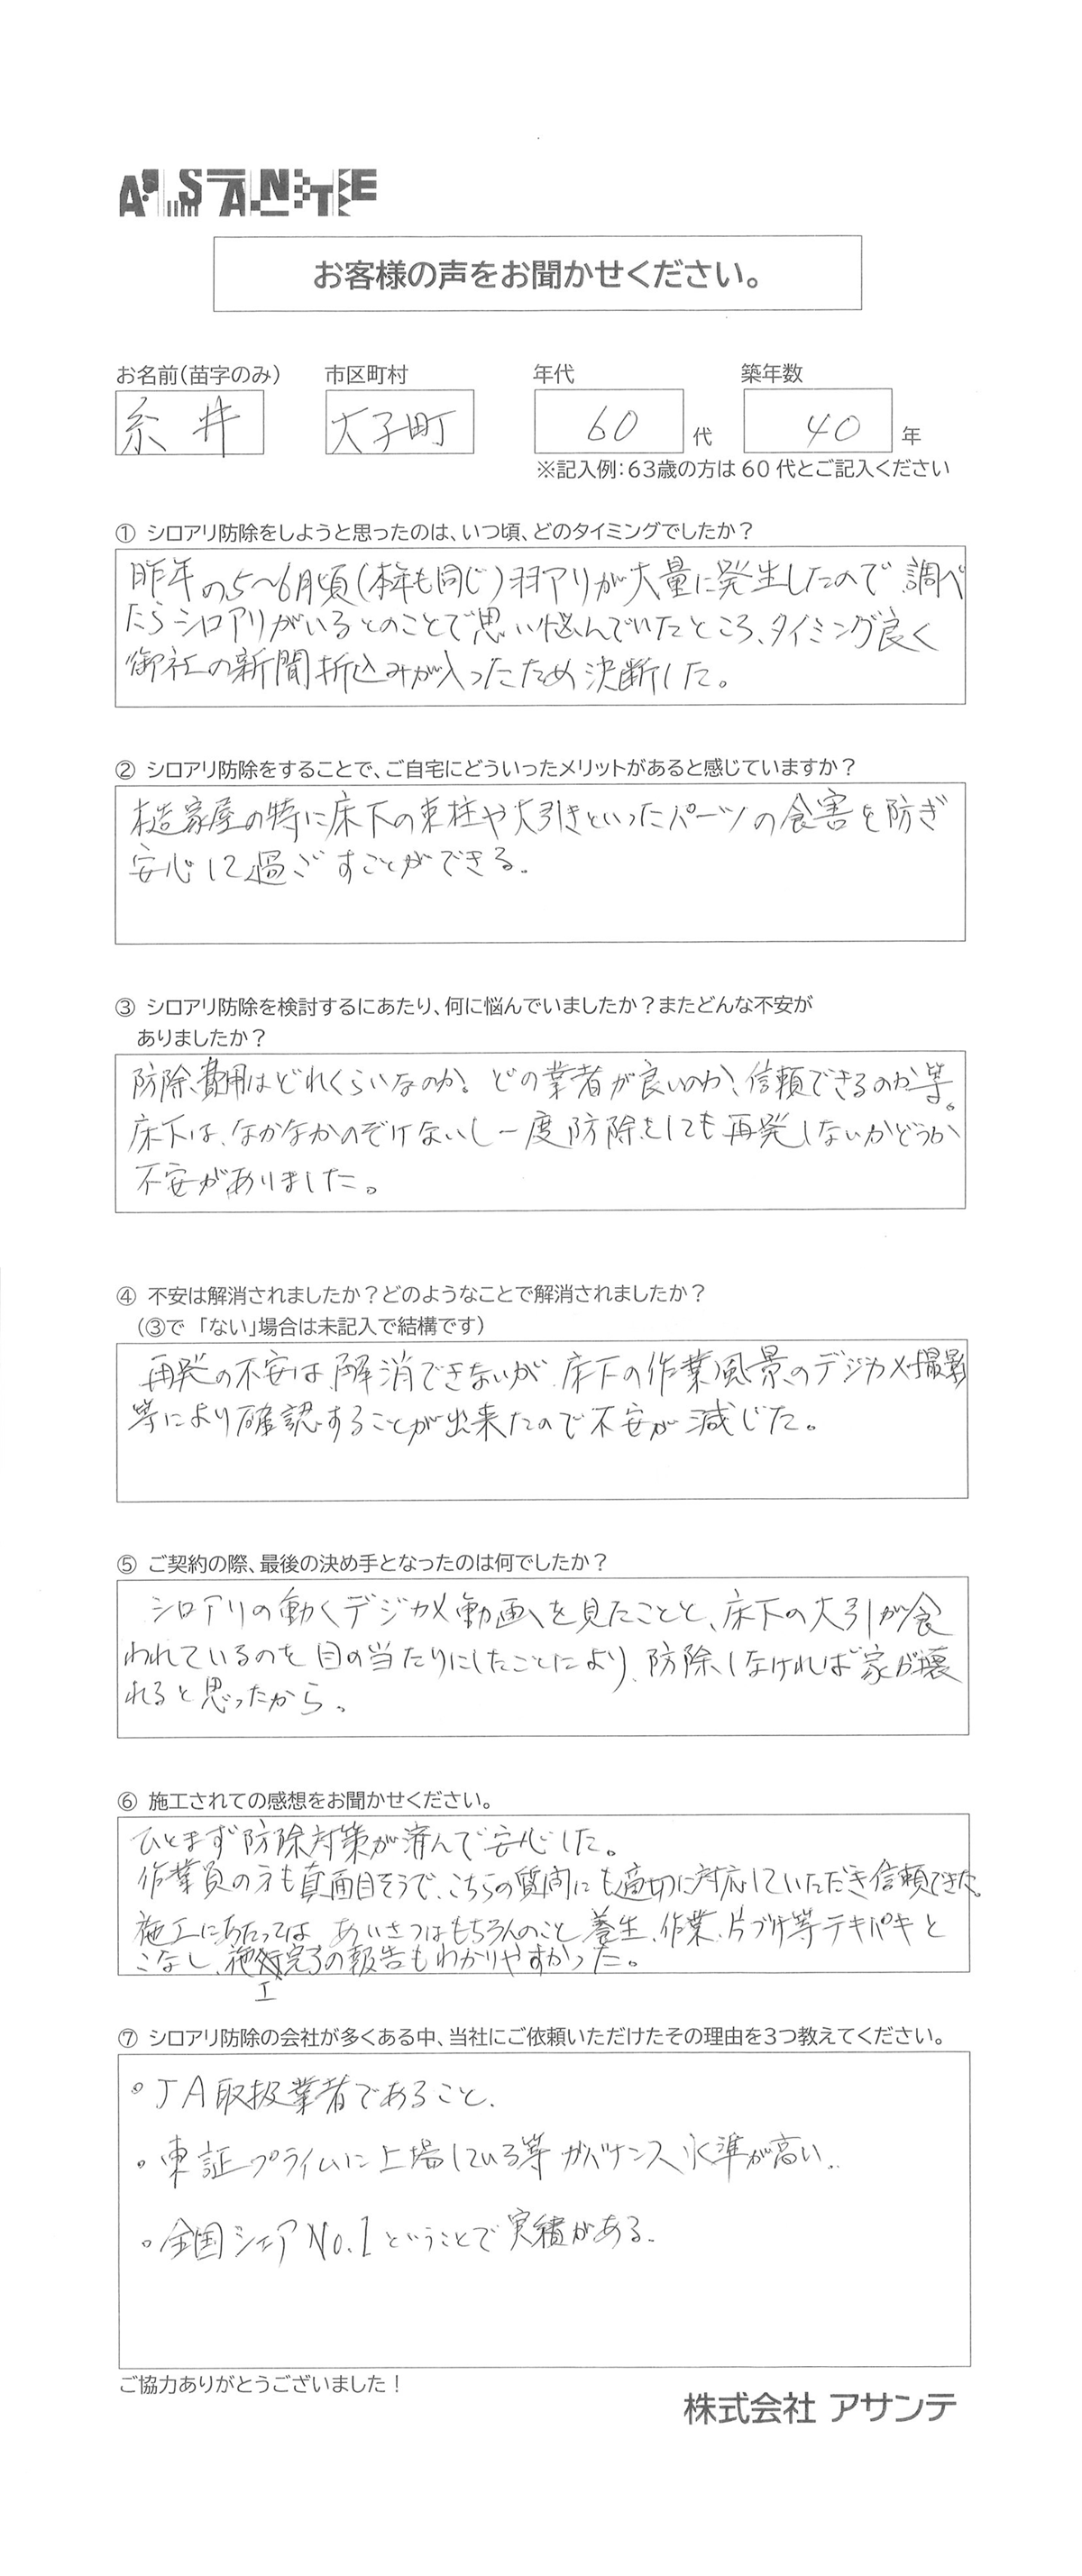 ASANTE
お客様の声をお聞かせください。
お名前（苗字のみ） 市区町村 年代 築年数
糸井 大子町 60 代 40 年
※記入例：63歳の方は 60 代とご記入ください
① シロアリ防除をしようと思ったのは、いつ頃、どのタイミングでしたか？
昨年の5〜6月頃（本年も同じ）羽アリが大量に発生したので、調べ
たらシロアリがいるとのことで思い悩んでいたところ、タイミング良く
御社の新聞折込みが入ったため決断した。
② シロアリ防除をすることで、ご自宅にどういったメリットがあると感じていますか？
木造家屋の特に床下の束柱や大引きといったパーツの食害を防ぎ
安心して過ごすことができる。
③ シロアリ防除を検討するにあたり、何に悩んでいましたか？またどんな不安が
ありましたか？
防除費用はどれくらいなのか。どの業者が良いのか、信頼できるのか等。
床下は、なかなかのぞけないし一度防除をしても再発しないかどうか
不安がありました。
④ 不安は解消されましたか？どのようなことで解消されましたか？
（③で「ない」場合は未記入で結構です）
再発の不安は解消できないが、床下の作業風景のデジカメ撮影
等により確認することが出来たので不安が減じた。
⑤ ご契約の際、最後の決め手となったのは何でしたか？
シロアリの動くデジカメ動画を見たことと、床下の大引が食
われているのを目の当たりにしたことにより、防除しなければ家が壊
れると思ったから。
⑥ 施工されての感想をお聞かせください。
ひとまず防除対策が済んで安心した。
作業員の方も真面目そうで、こちらの質問にも適切に対応していただき信頼できた。
施工にあたっては、あいさつはもちろんのこと、養生、作業、片づけ等テキパキと
こなし、施工完了の報告もわかりやすかった。
⑦ シロアリ防除の会社が多くある中、当社にご依頼いただけたその理由を3つ教えてください。
。JA取扱業者であること。
。東証プライムに上場している等ガバナンス水準が高い。
。全国シェアNo.1ということで実績がある。
ご協力ありがとうございました！
株式会社 アサンテ